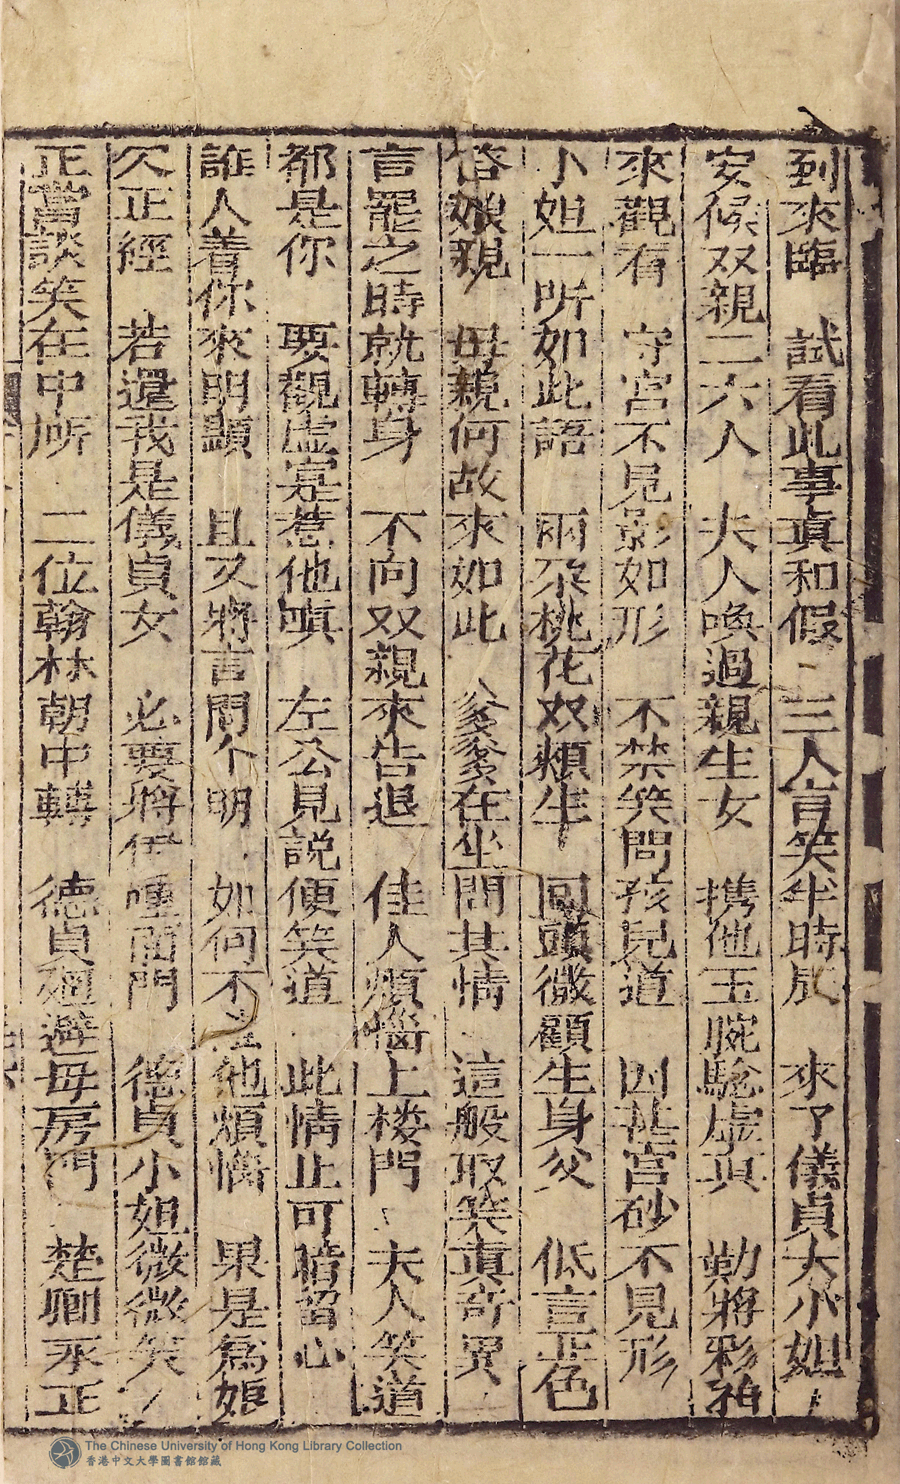 到來臨　試看此事真和假　三人言笑半時辰　來了儀貞大小姐
安候双親二六人　夫人喚過親生女　携他玉腕騐虛真　勤將彩袖
來觀看　守宮不見影如形　不禁笑問孩兒道　因甚宮砂不見形
小姐一听如此語　兩朶桃花双頰生　回頭微顧生身父　低言正色
啓娘親　母親何故來如此　爹爹在坐問其情　這般取笑真奇異
言罷之時就轉身　不向双親來告退　佳人煩惱上楼門　夫人笑道
都是你　要觀虛寔惹他嗔　左公見説便笑道　此情止可暗留心
誰人着你來明顯　且又將言問个明　如何不　他煩惱　果是為娘
欠正經　若還我是儀貞女　必要將伊唾面門　德貞小姐微微笑
正當談笑在中所　二位翰林朝中轉　德貞廻避毋房門　楚卿永正
The Chinese University of Hong Kong Library Collection
香港中文大學圖書館館藏